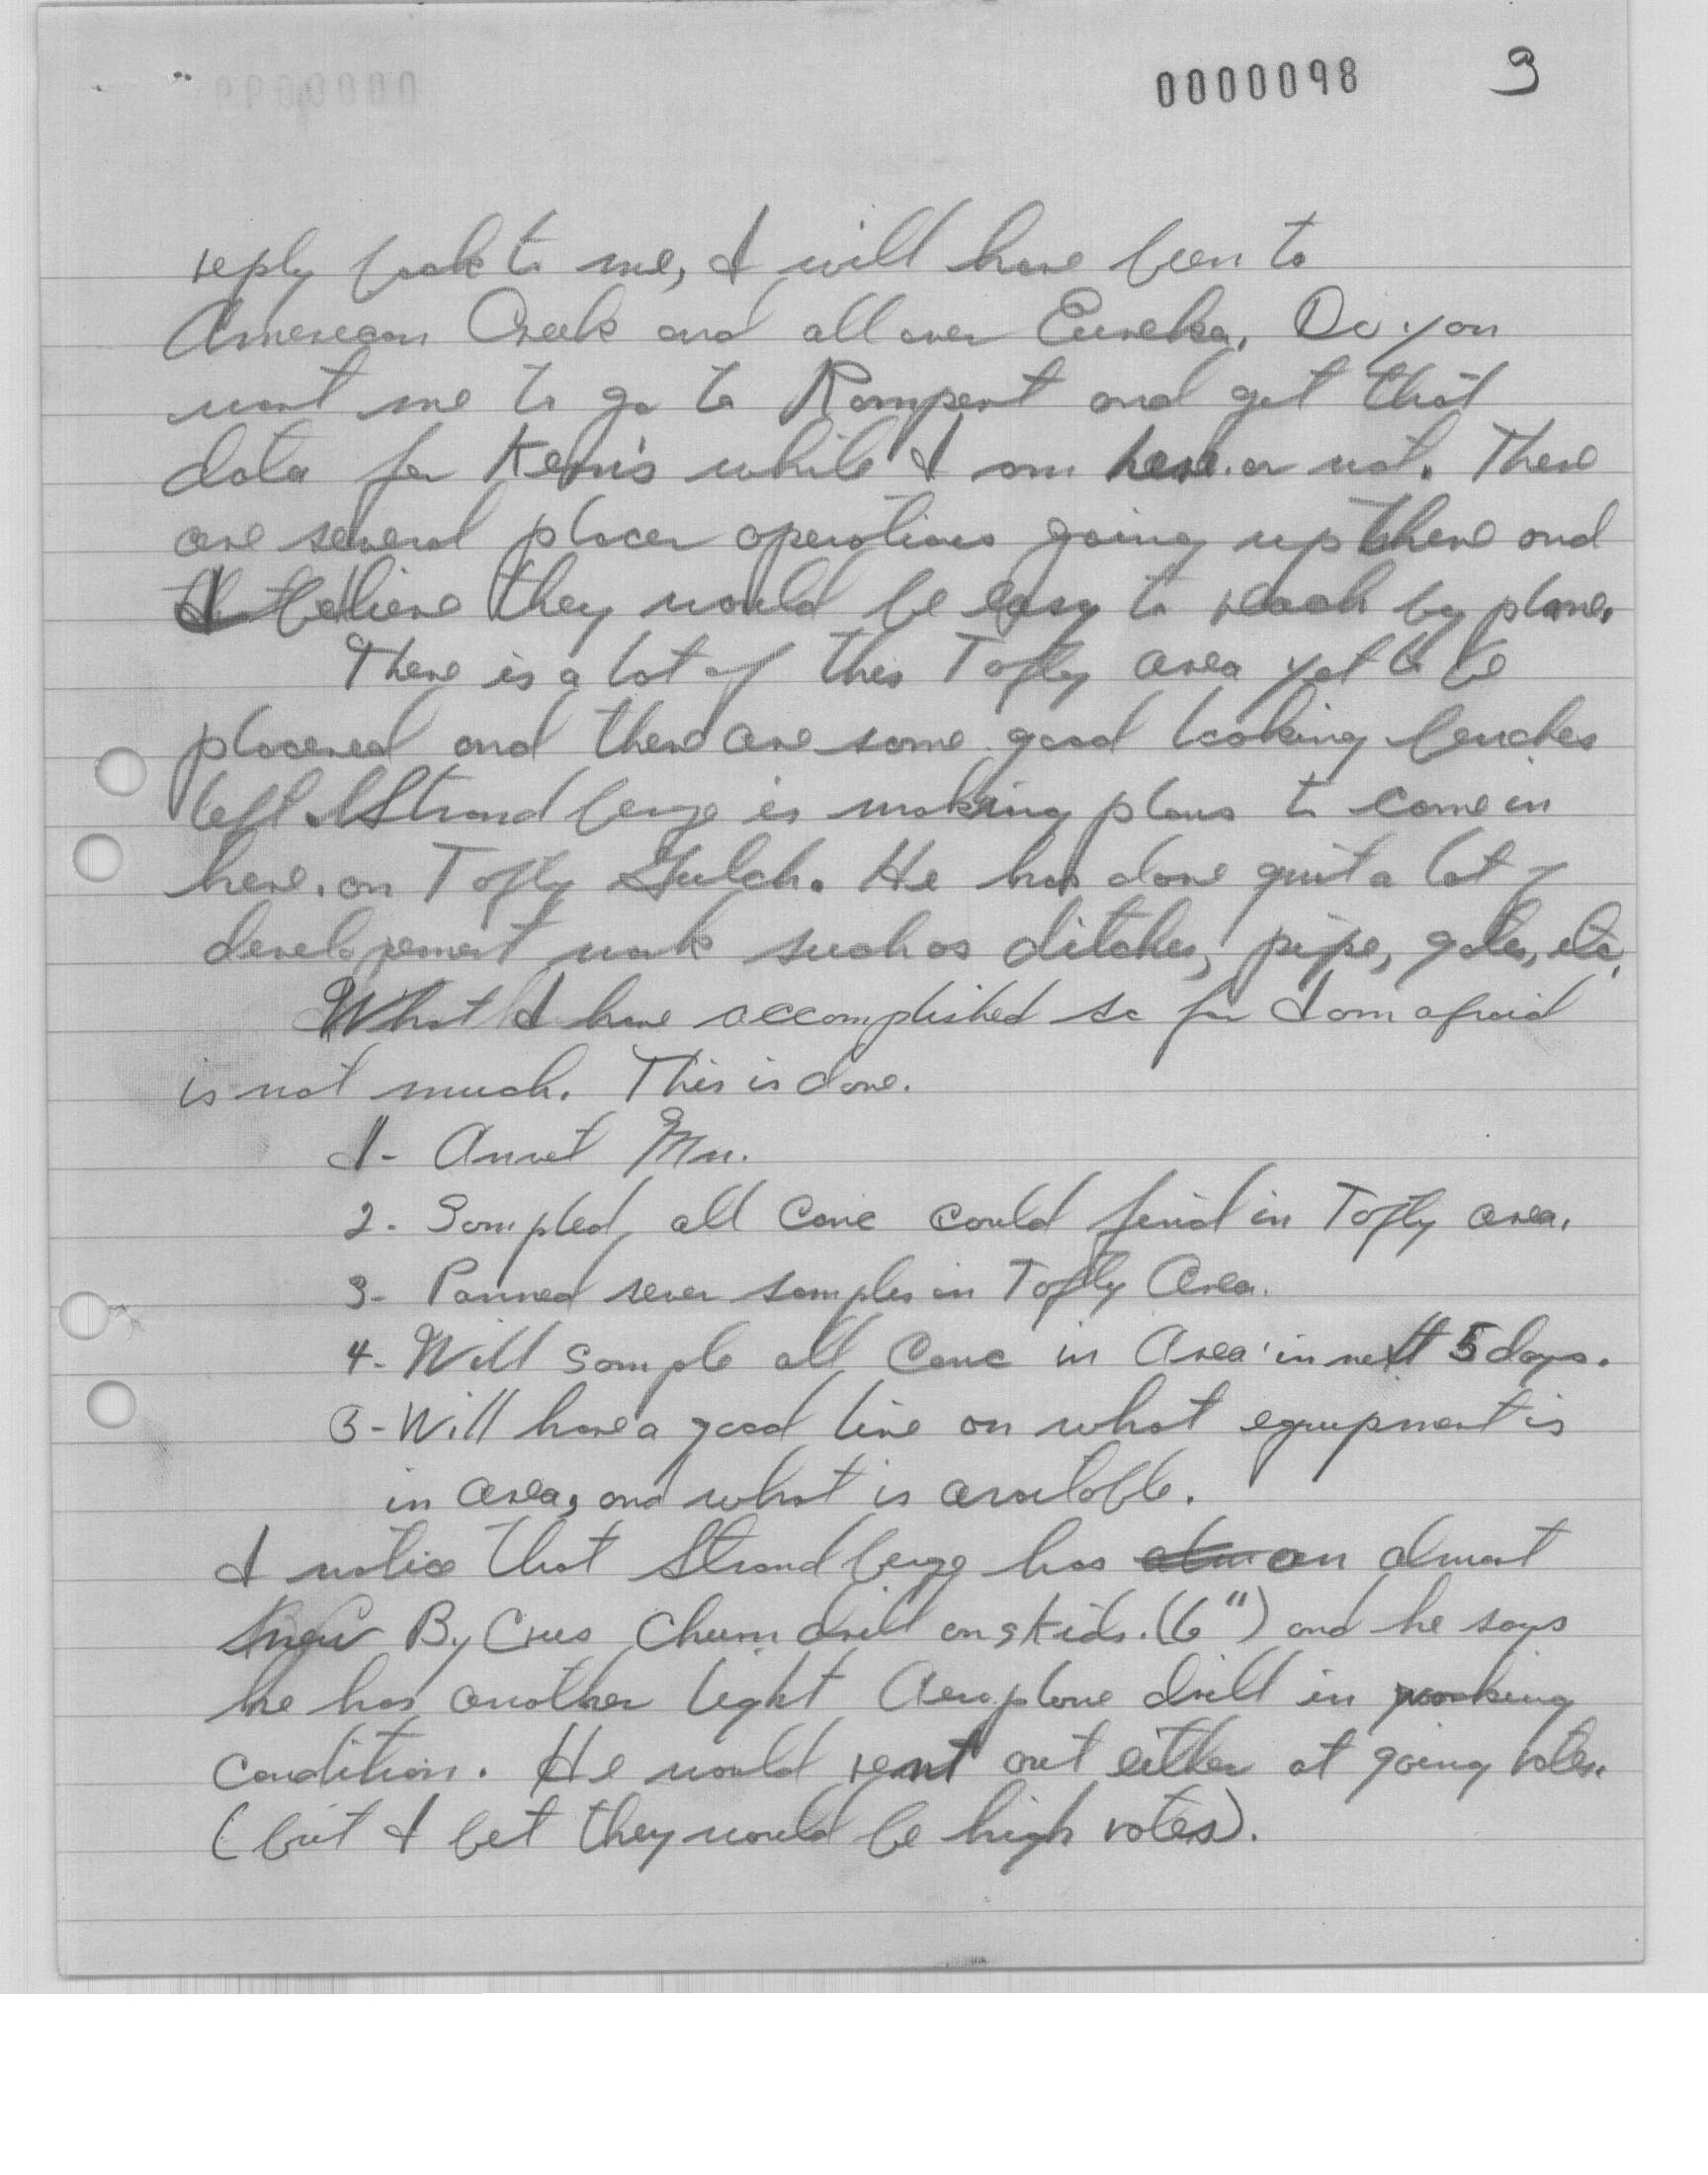 0000098 3
reply back to me, I will have been to
American Creek and all over Eureka. Do you
want me to go to Rampart and get that
data for while I am here or not. There
are several placer operations going up there and
I believe they would be easy to reach by plane.
There is a lot of this Tofty area yet to be
placered and there are some good looking benches
left. Strandberge is making plans to come in
here. on Tofty Gulch. He has done quit a lot of
development work such as ditches, pipe, gates, etc.
What I have accomplished so far I am afraid
is not much. This is done.
1- Mn.
2- Sampled, all Conc could find in Tofty area.
3- Panned sever samples in Tofty Area.
4- Will sample all Conc in Area in next 5 days.
5- Will have a good line on what equipment is
in area, and what is available.
I notice that Strandberge has an almost
new By Crus Churn drill on skids. (6") and he says
he has another light Aeroplane drill in working
condition. He would rent out either at going rates.
(but I bet they would be high rates).